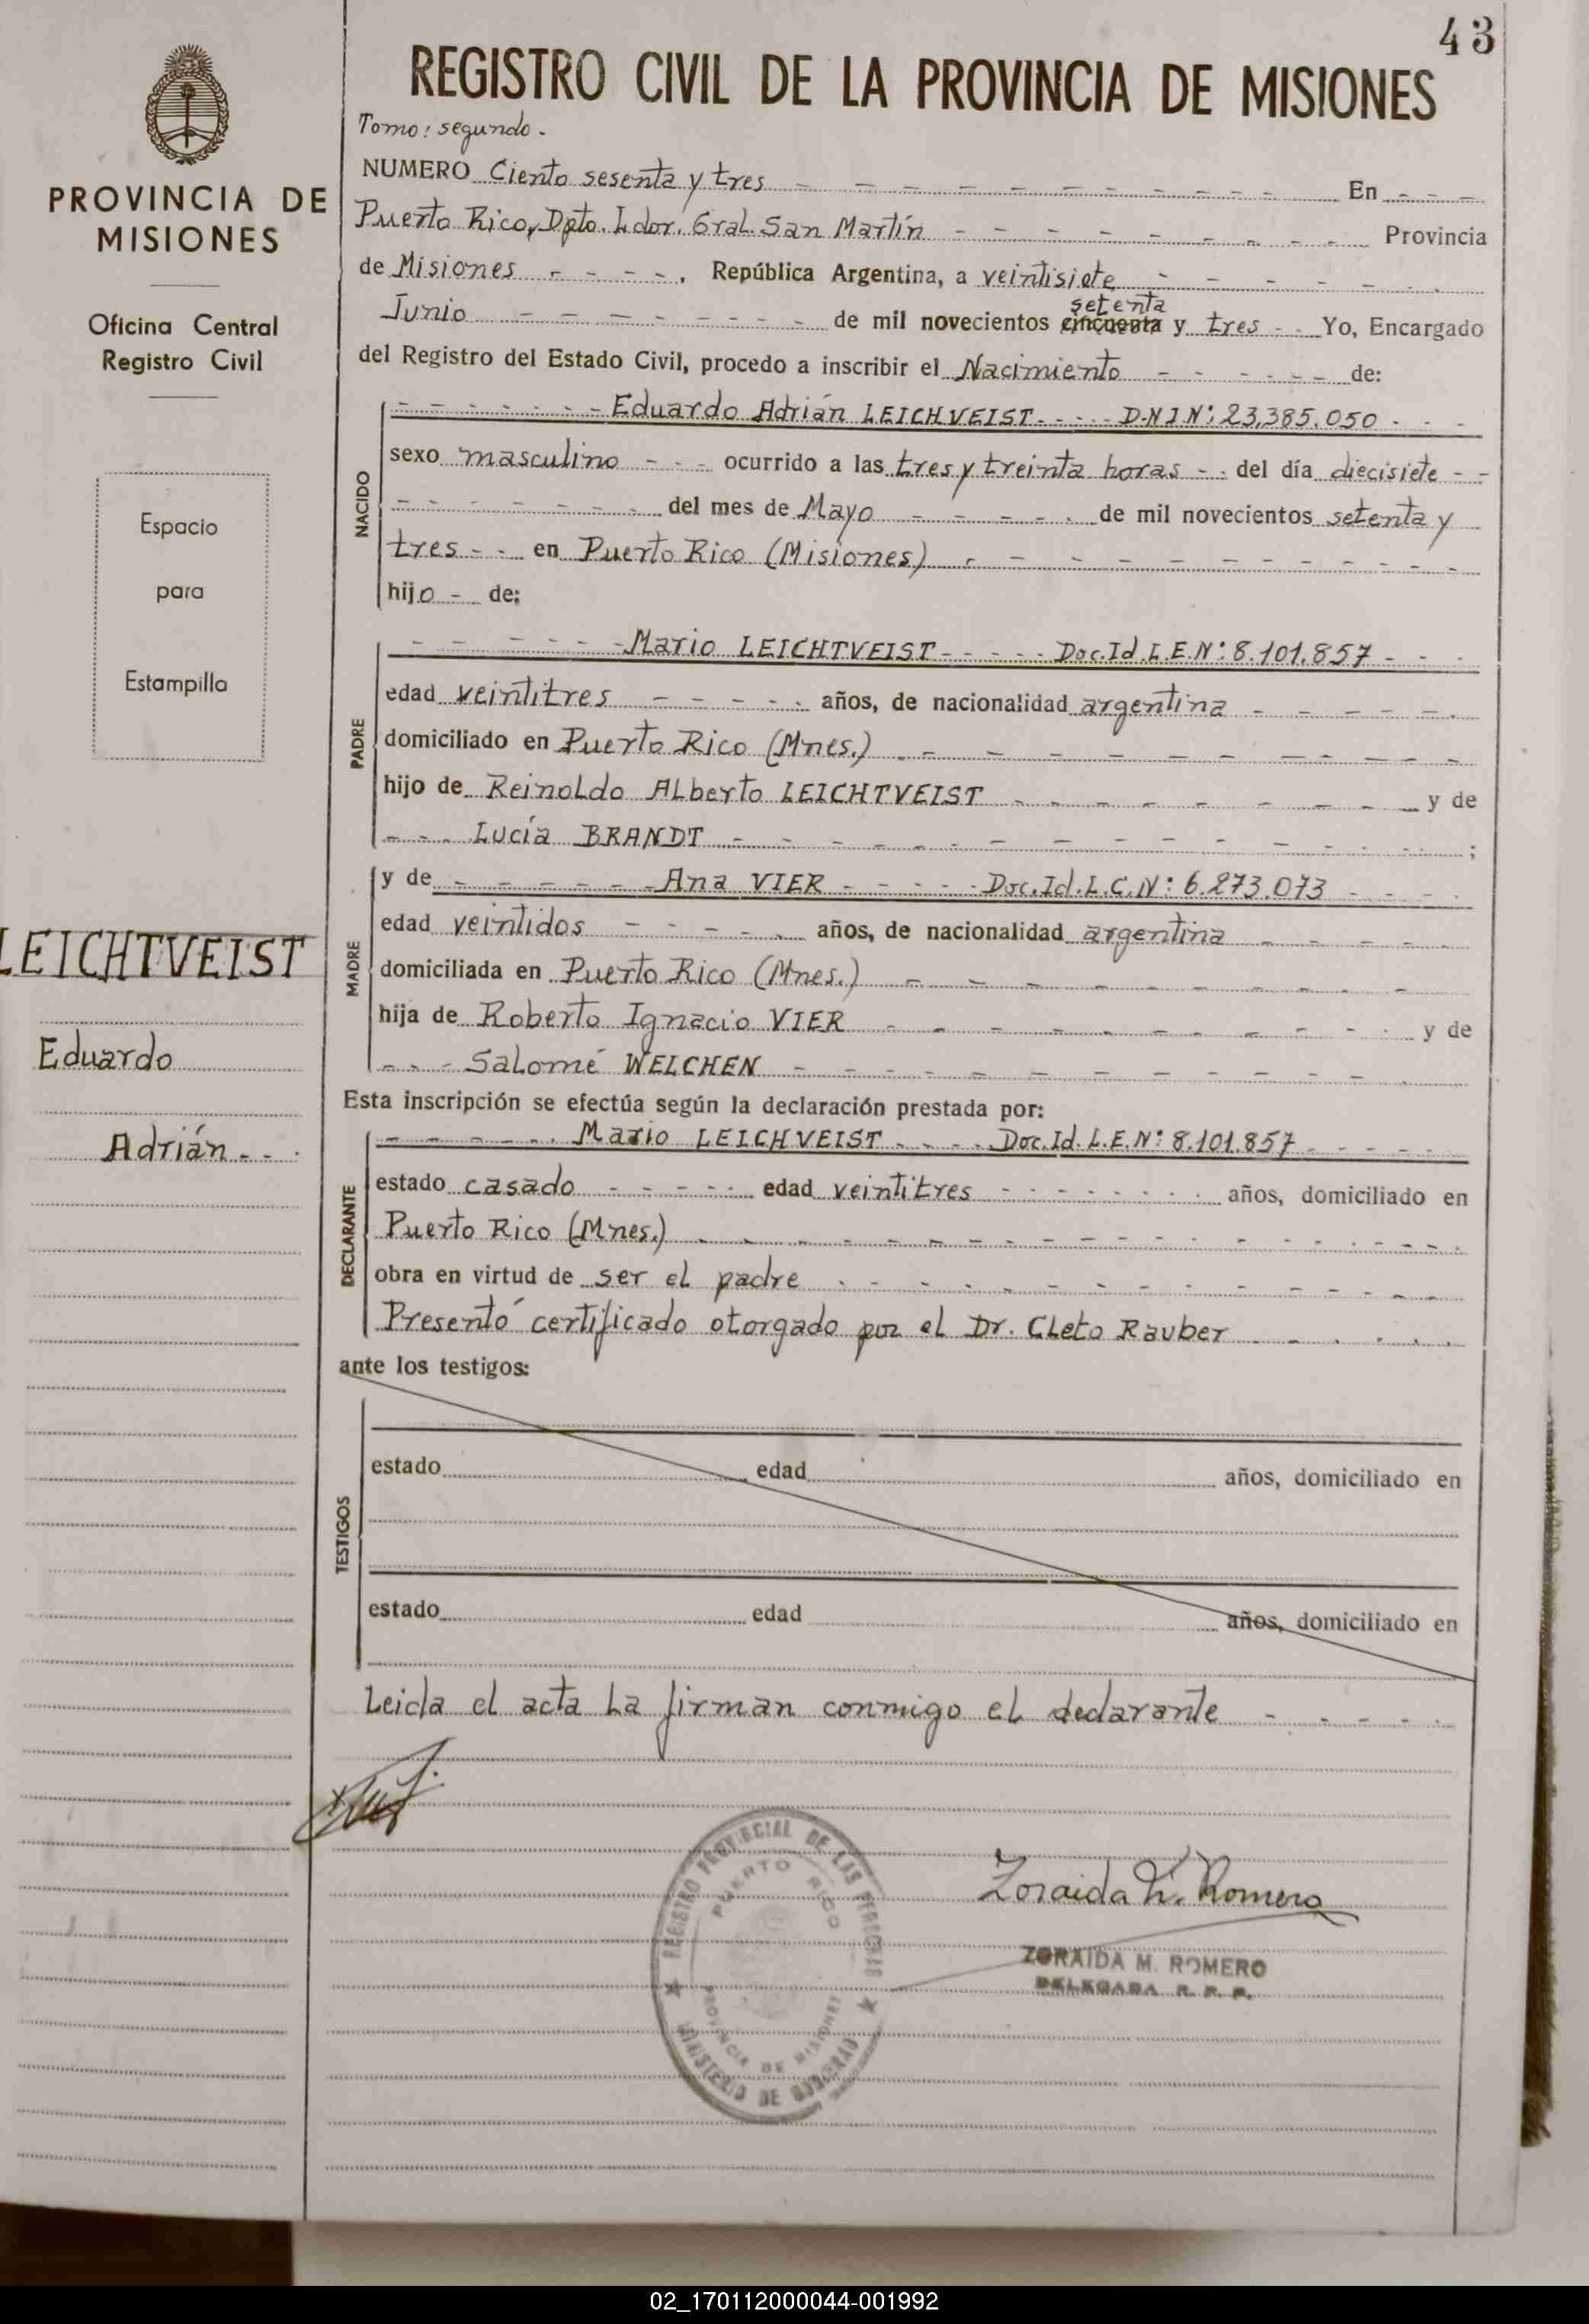 43
REGISTRO CIVIL DE LA PROVINCIA DE MISIONES
Tomo: segundo.
NUMERO Ciento sesenta y tres En
Puerto Rico, Dpto. Ldor. Gral. San Martín Provincia
de Misiones, República Argentina, a veintisiete
Junio de mil novecientos cincuenta setenta y tres Yo, Encargado
del Registro del Estado Civil, procedo a inscribir el Nacimiento de:
Eduardo Adrián LEICHVEIST D.N.I.Nº: 23,385.050
NACIDO
sexo masculino ocurrido a las tres y treinta horas del día diecisiete
del mes de Mayo de mil novecientos setenta y
tres en Puerto Rico (Misiones)
hijo de:
PADRE
Mario LEICHTVEIST Doc.Id.L.E.Nº: 8.101.857
edad veintitres años, de nacionalidad argentina
domiciliado en Puerto Rico (Mnes.)
hijo de Reinoldo Alberto LEICHTVEIST y de
Lucía BRANDT ;
MADRE
y de Ana VIER Doc.Id.L.C.Nº: 6.273.073
edad veintidos años, de nacionalidad argentina
domiciliada en Puerto Rico (Mnes.)
hija de Roberto Ignacio VIER y de
Salomé WELCHEN
Esta inscripción se efectúa según la declaración prestada por:
DECLARANTE
Mario LEICHVEIST Doc.Id.L.E.Nº: 8.101.857
estado casado edad veintitres años, domiciliado en
Puerto Rico (Mnes.)
obra en virtud de ser el padre
Presentó certificado otorgado por el Dr. Cleto Rauber
ante los testigos:
TESTIGOS
estado edad años, domiciliado en
estado edad años, domiciliado en
Leida el acta la firman conmigo el declarante
Zoraida M. Romero
ZORAIDA M. ROMERO
DELEGADA R. P. P.
REGISTRO PROVINCIAL DE LAS PERSONAS
PUERTO RICO
PROVINCIA DE MISIONES
MINISTERIO DE GOBIERNO
PROVINCIA DE
MISIONES
Oficina Central
Registro Civil
Espacio
para
Estampilla
LEICHTVEIST
Eduardo
Adrián
02_170112000044-001992